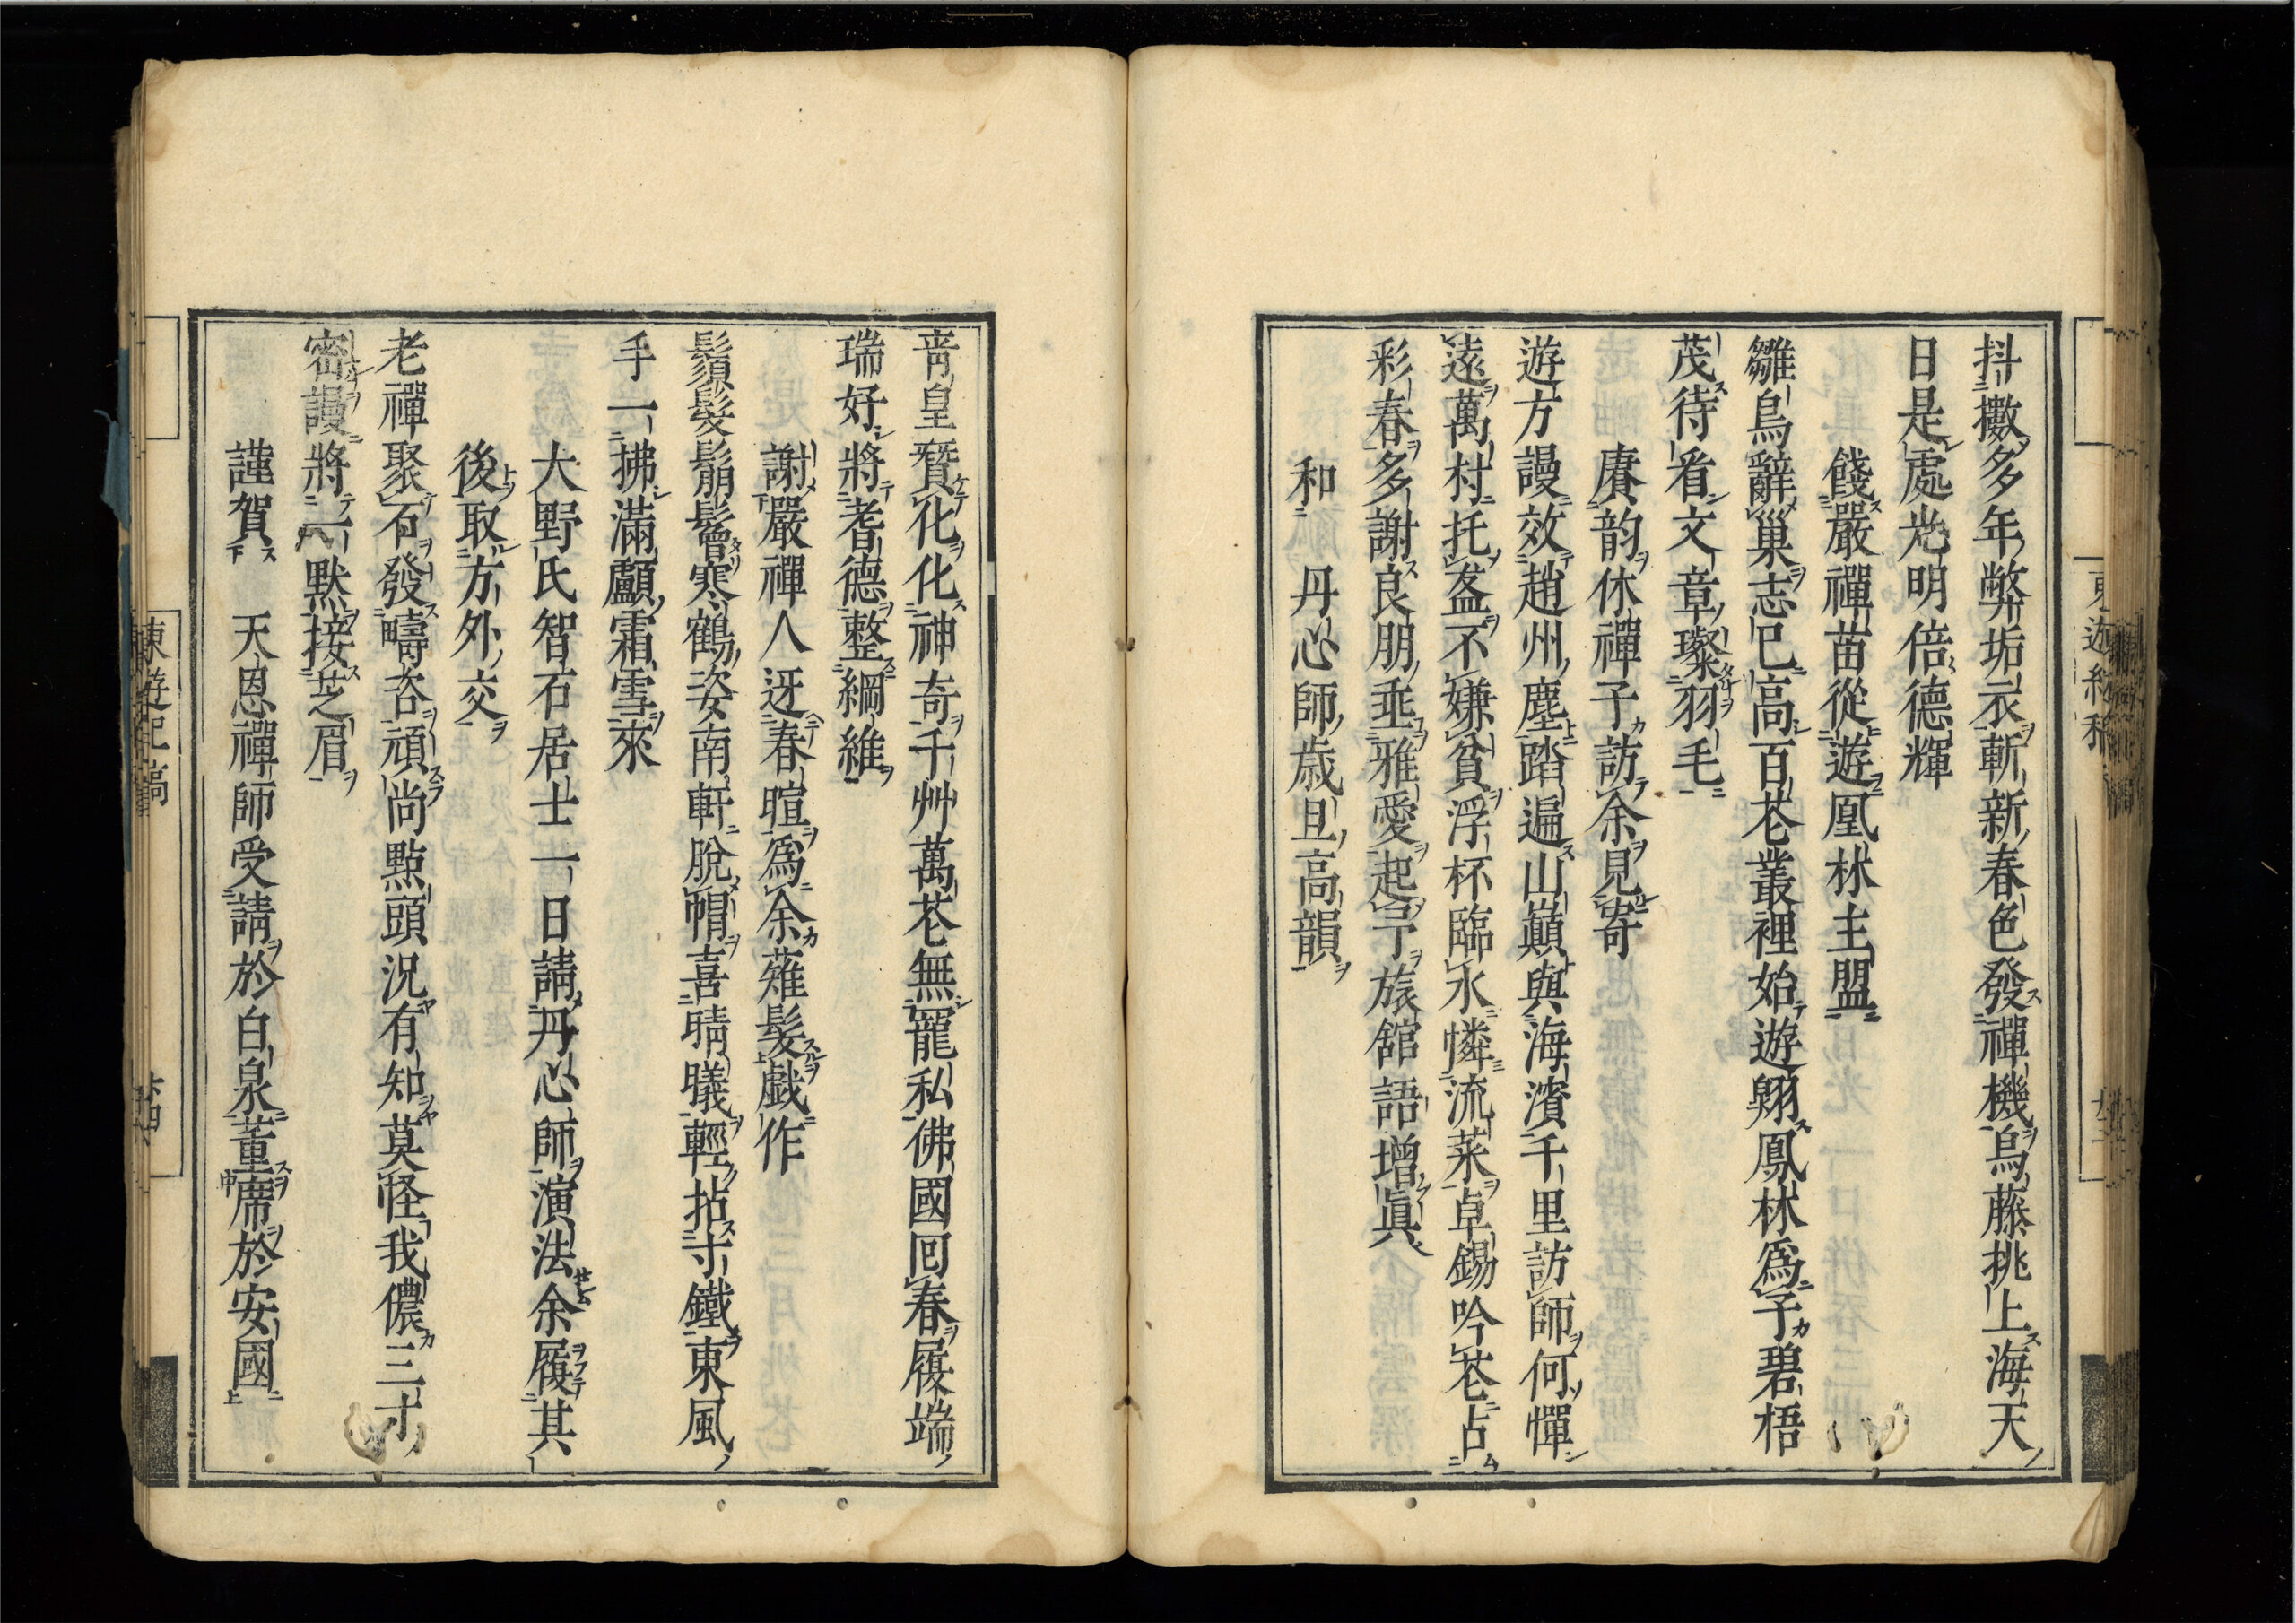 抖擻多年弊垢衣斬新春色發禪機烏藤挑上海天
日是處光明倍德輝
餞嚴禪苗從遊凰林主盟
雛烏辭巢志已高百花叢裡始遊翺鳳林爲子碧梧
茂待看文章璨羽毛
賡韵休禪子訪余見寄
遊方謾效趙州塵踏遍山巔與海濱千里訪師何憚
遠萬村托盋不嫌貧浮杯臨水憐流菜卓錫吟花占
彩春多謝良朋垂雅愛起予旅舘語增眞
和 丹心師歲旦高韻
靑皇贊化化神奇千艸萬花無寵私佛國囘春履端
瑞好將耆德整綱維
謝嚴禪人迓春暄爲余薙髮戲作
鬚髮鬅鬙寒鶴姿南軒脫帽喜晴曦輕拈寸鐵東風
手一拂滿顱霜雪來
大野氏智石居士一日請丹心師演法余履其
後取方外交
老禪聚石發疇咨頑尚點頭況有知莫怪我儂三寸
密謾將一默接芝眉
謹賀 天恩禪師受請於白泉董席於安國
東遊紀稿